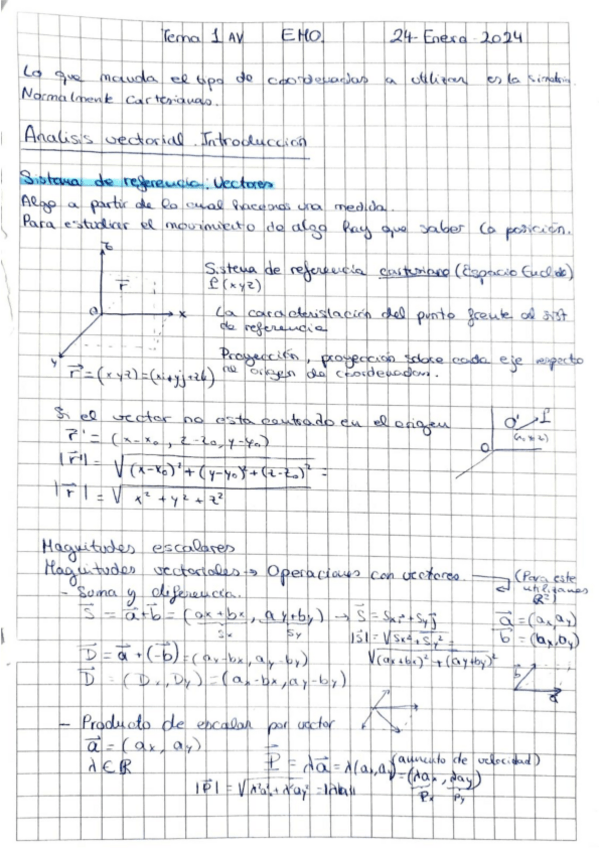 Tema 1 AV EMO. 24-Enero-2024
Lo que manda el tipo de coordenadas a utilizar es la simetria.
Normalmente cartesianas.
Analisis vectorial. Introducción
Sistema de referencia: Vectores
Algo a partir de lo cual hacemos una medida.
Para estudiar el movimiento de algo hay que saber la posición.
z
r⃗
O
x
y
Sistema de referencia cartesiano (Espacio Euclide)
P(xyz)
La caracterislación del punto frente al sist
de referencia
Proyección, proyección sobre cada eje respecto
no origen de coordenadas.
r⃗ = (xyz) = (xi+yj+zk)
Si el vector no esta centrado en el origen
r⃗' = (x-x₀, z-z₀, y-y₀)
|r⃗'| = √(x-x₀)²+(y-y₀)²+(z-z₀)² =
|r⃗| = √x²+y²+z²
O'
O
Magnitudes escalares
Magnitudes vectoriales → Operaciones con vectores
(Para este
utilizamos
ℝ²)
- Suma y diferencia.
S⃗ = a⃗+b⃗ = (ax+bx, ay+by) → S⃗ = Sxi+Syj
Sx Sy
|S⃗| = √Sx²+Sy² =
√(ax+bx)²+(ay+by)²
a⃗ = (ax,ay)
b⃗ = (bx,by)
D⃗ = a⃗+(-b⃗) = (ax-bx, ay-by)
D⃗ = (Dx, Dy) = (ax-bx, ay-by)
b⃗
a⃗
- Producto de escalar por vector
a⃗ = (ax, ay)
λ∈ℝ
P⃗ = λa⃗ = λ(ax,ay) = (λax, λay)
(aumento de velocidad)
Px Py
|P⃗| = √λ²ax²+λ²ay² = |λ||a|